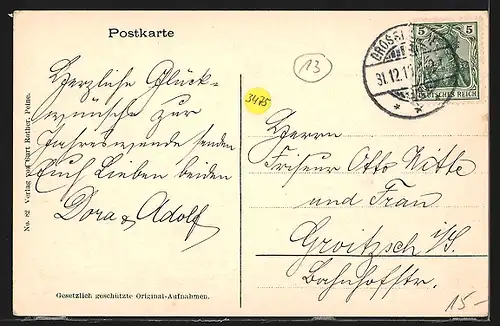 Postkarte
Herzliche Glück-
wünsche zur
Jahreswende senden
Euch Lieben beiden
Dora & Adolf
No. 82 Verlag von Curt Rother, Peine.
Gesetzlich geschützte Original-Aufnahmen.
13
3475
31.12.1
5 5
DEUTSCHES REICH
Herrn
Friseur Otto Witte
und Frau
Groitzsch i/S.
Bahnhofstr.
15-